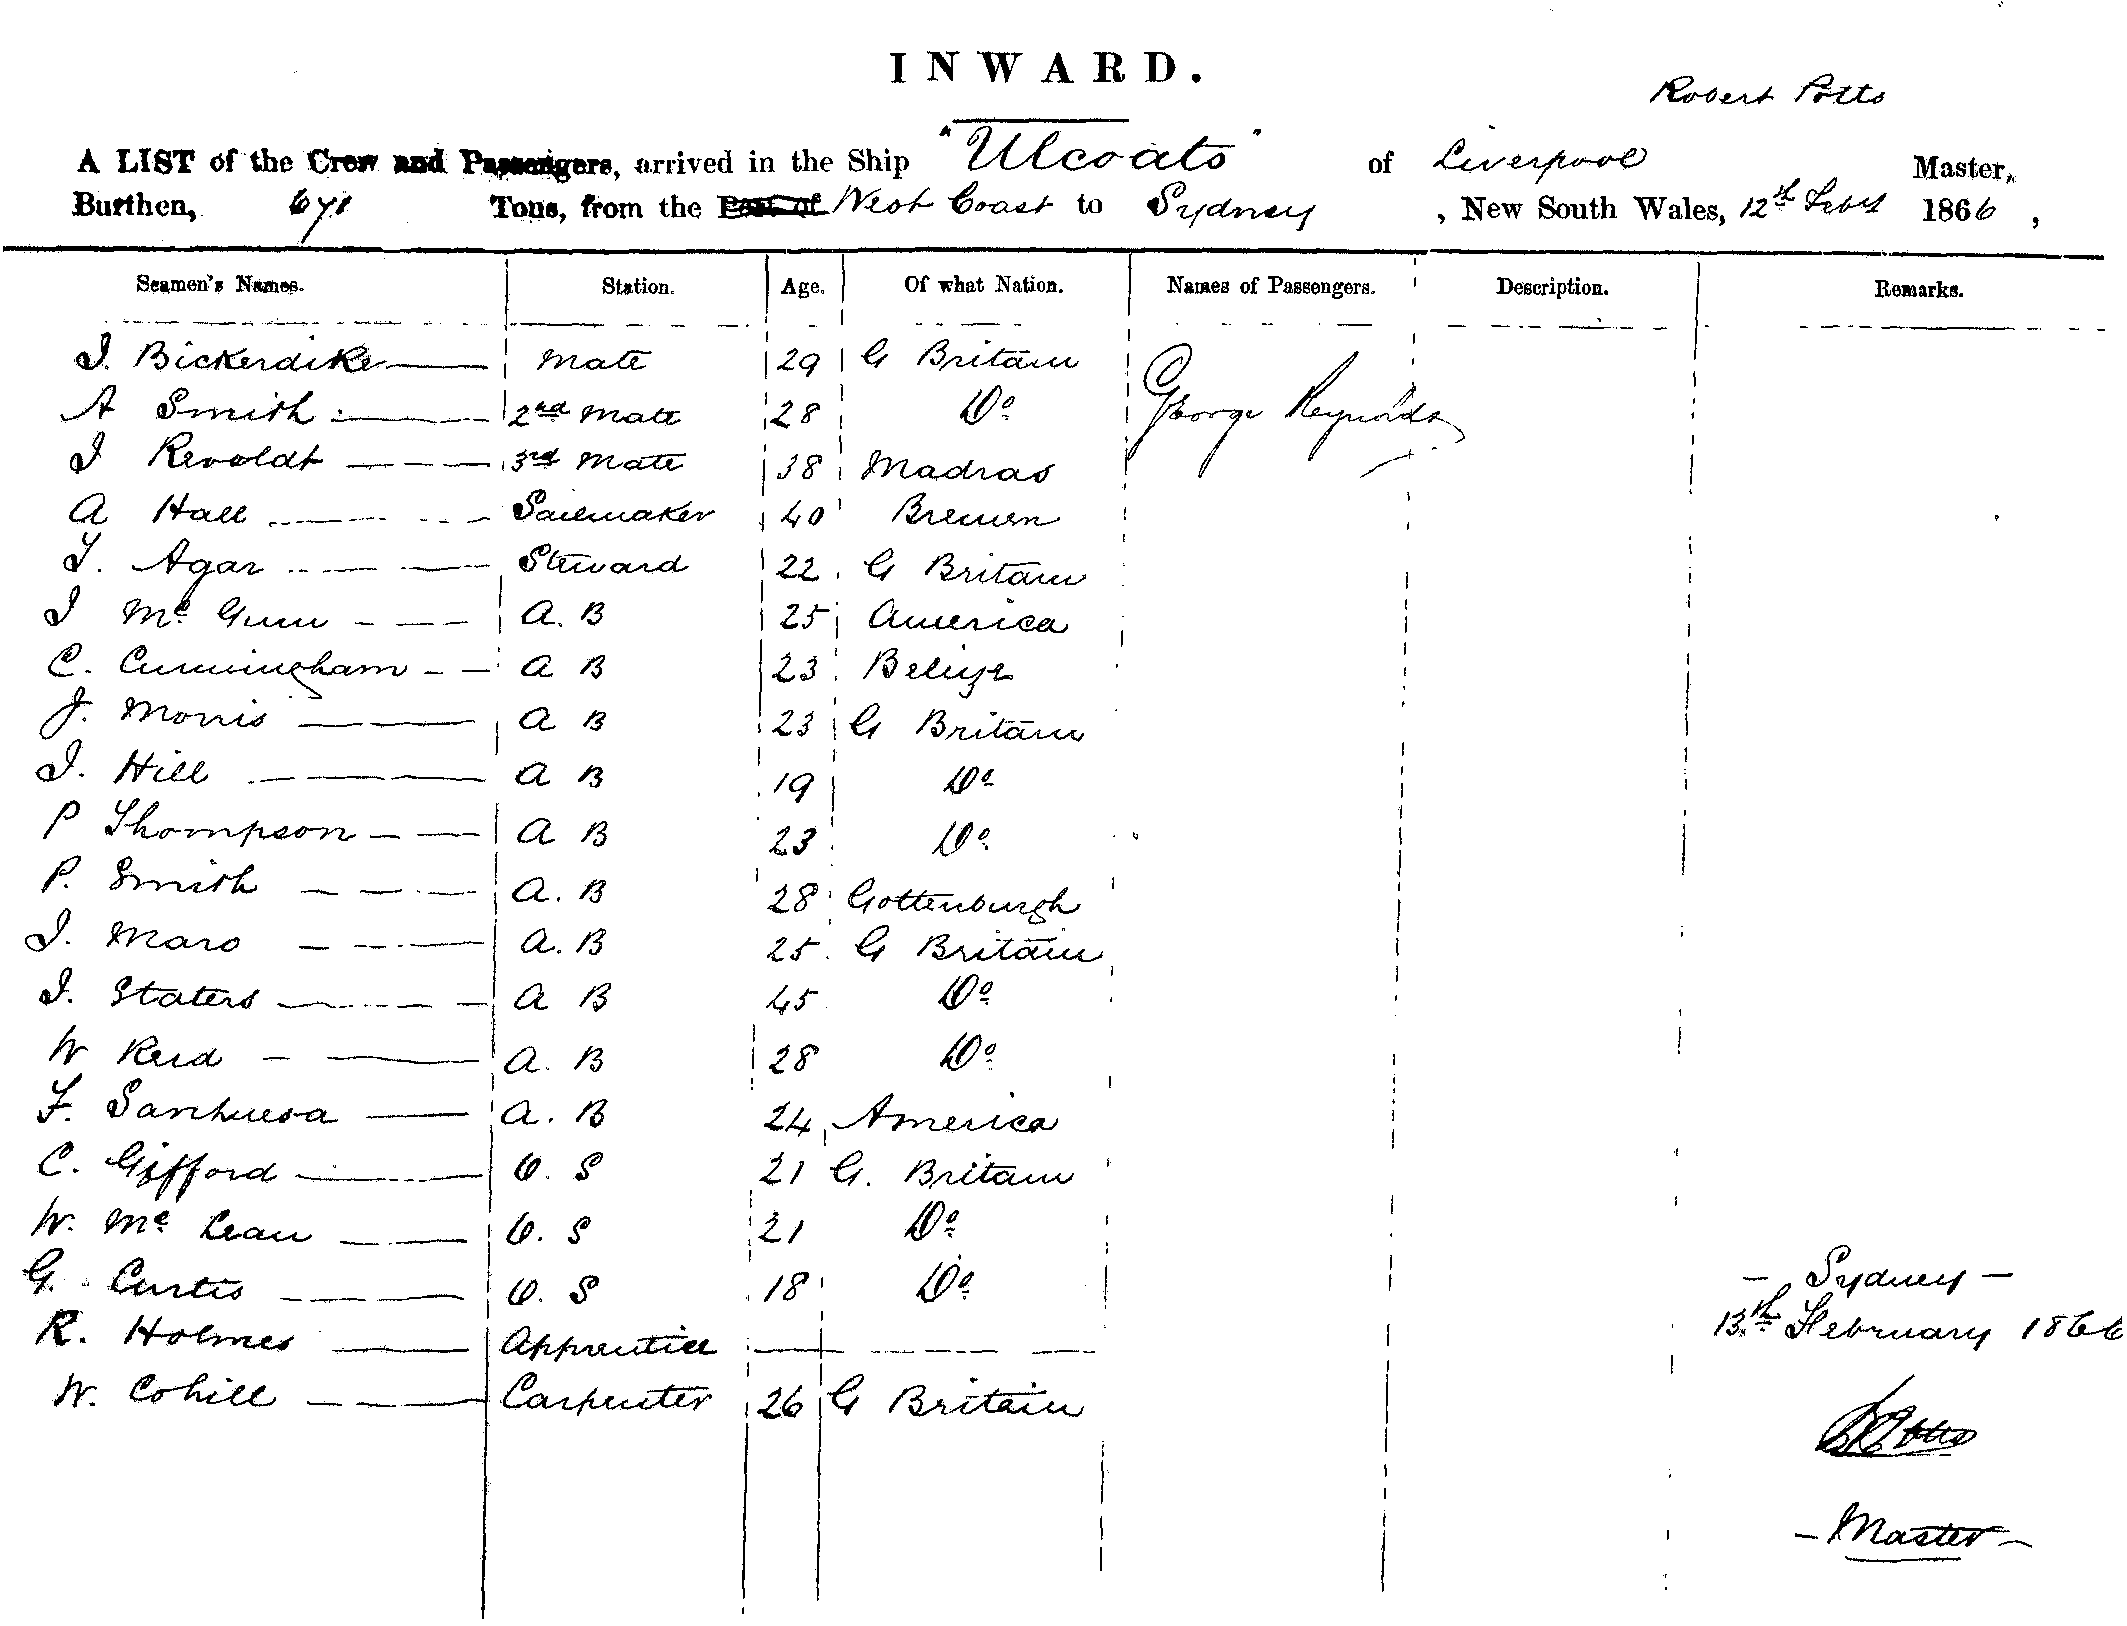 INWARD.
Robert Potts
A LIST of the Crew and Passengers, arrived in the Ship "Ulcoats" of Liverpool Master,
Burthen, 671 Tons, from the Port of West Coast to Sydney , New South Wales, 12th Feby 1866 ,
Seamen's Names. Station. Age. Of what Nation. Names of Passengers. Description. Remarks.
J. Bickerdike Mate 29 G Britain
A Smith 2nd Mate 28 Do George Reynolds
J Revoldt 3rd Mate 38 Madras
A Hall Sailmaker 40 Bremen
T. Agar Steward 22 G Britain
J Mc Gunn A. B 25 America
C. Cunningham A B 23 Belize
J. Morris A B 23 G Britain
J. Hill A B 19 Do
P Thompson A B 23 Do
P. Smith A. B 28 Gottenburgh
J. Maro A. B 25 G Britain
J. Staters A B 45 Do
W Reid A. B 28 Do
F. Sanhuesa A. B 24 America
C. Gifford O. S 21 G. Britain
W. Mc Lean O. S 21 Do
G. Curtis O. S 18 Do
- Sydney -
R. Holmes Apprentice
13th February 1866
W. Cohill Carpenter 26 G Britain
R Potts
- Master -